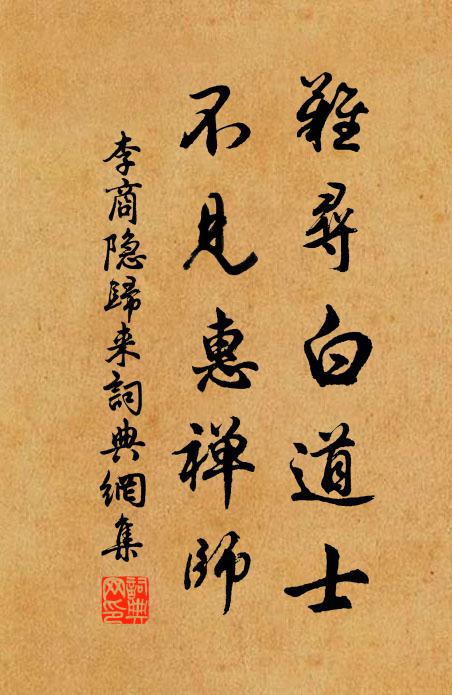 難尋白道士
不見惠禅師
李商隐歸来詞典網集
詞典
网印